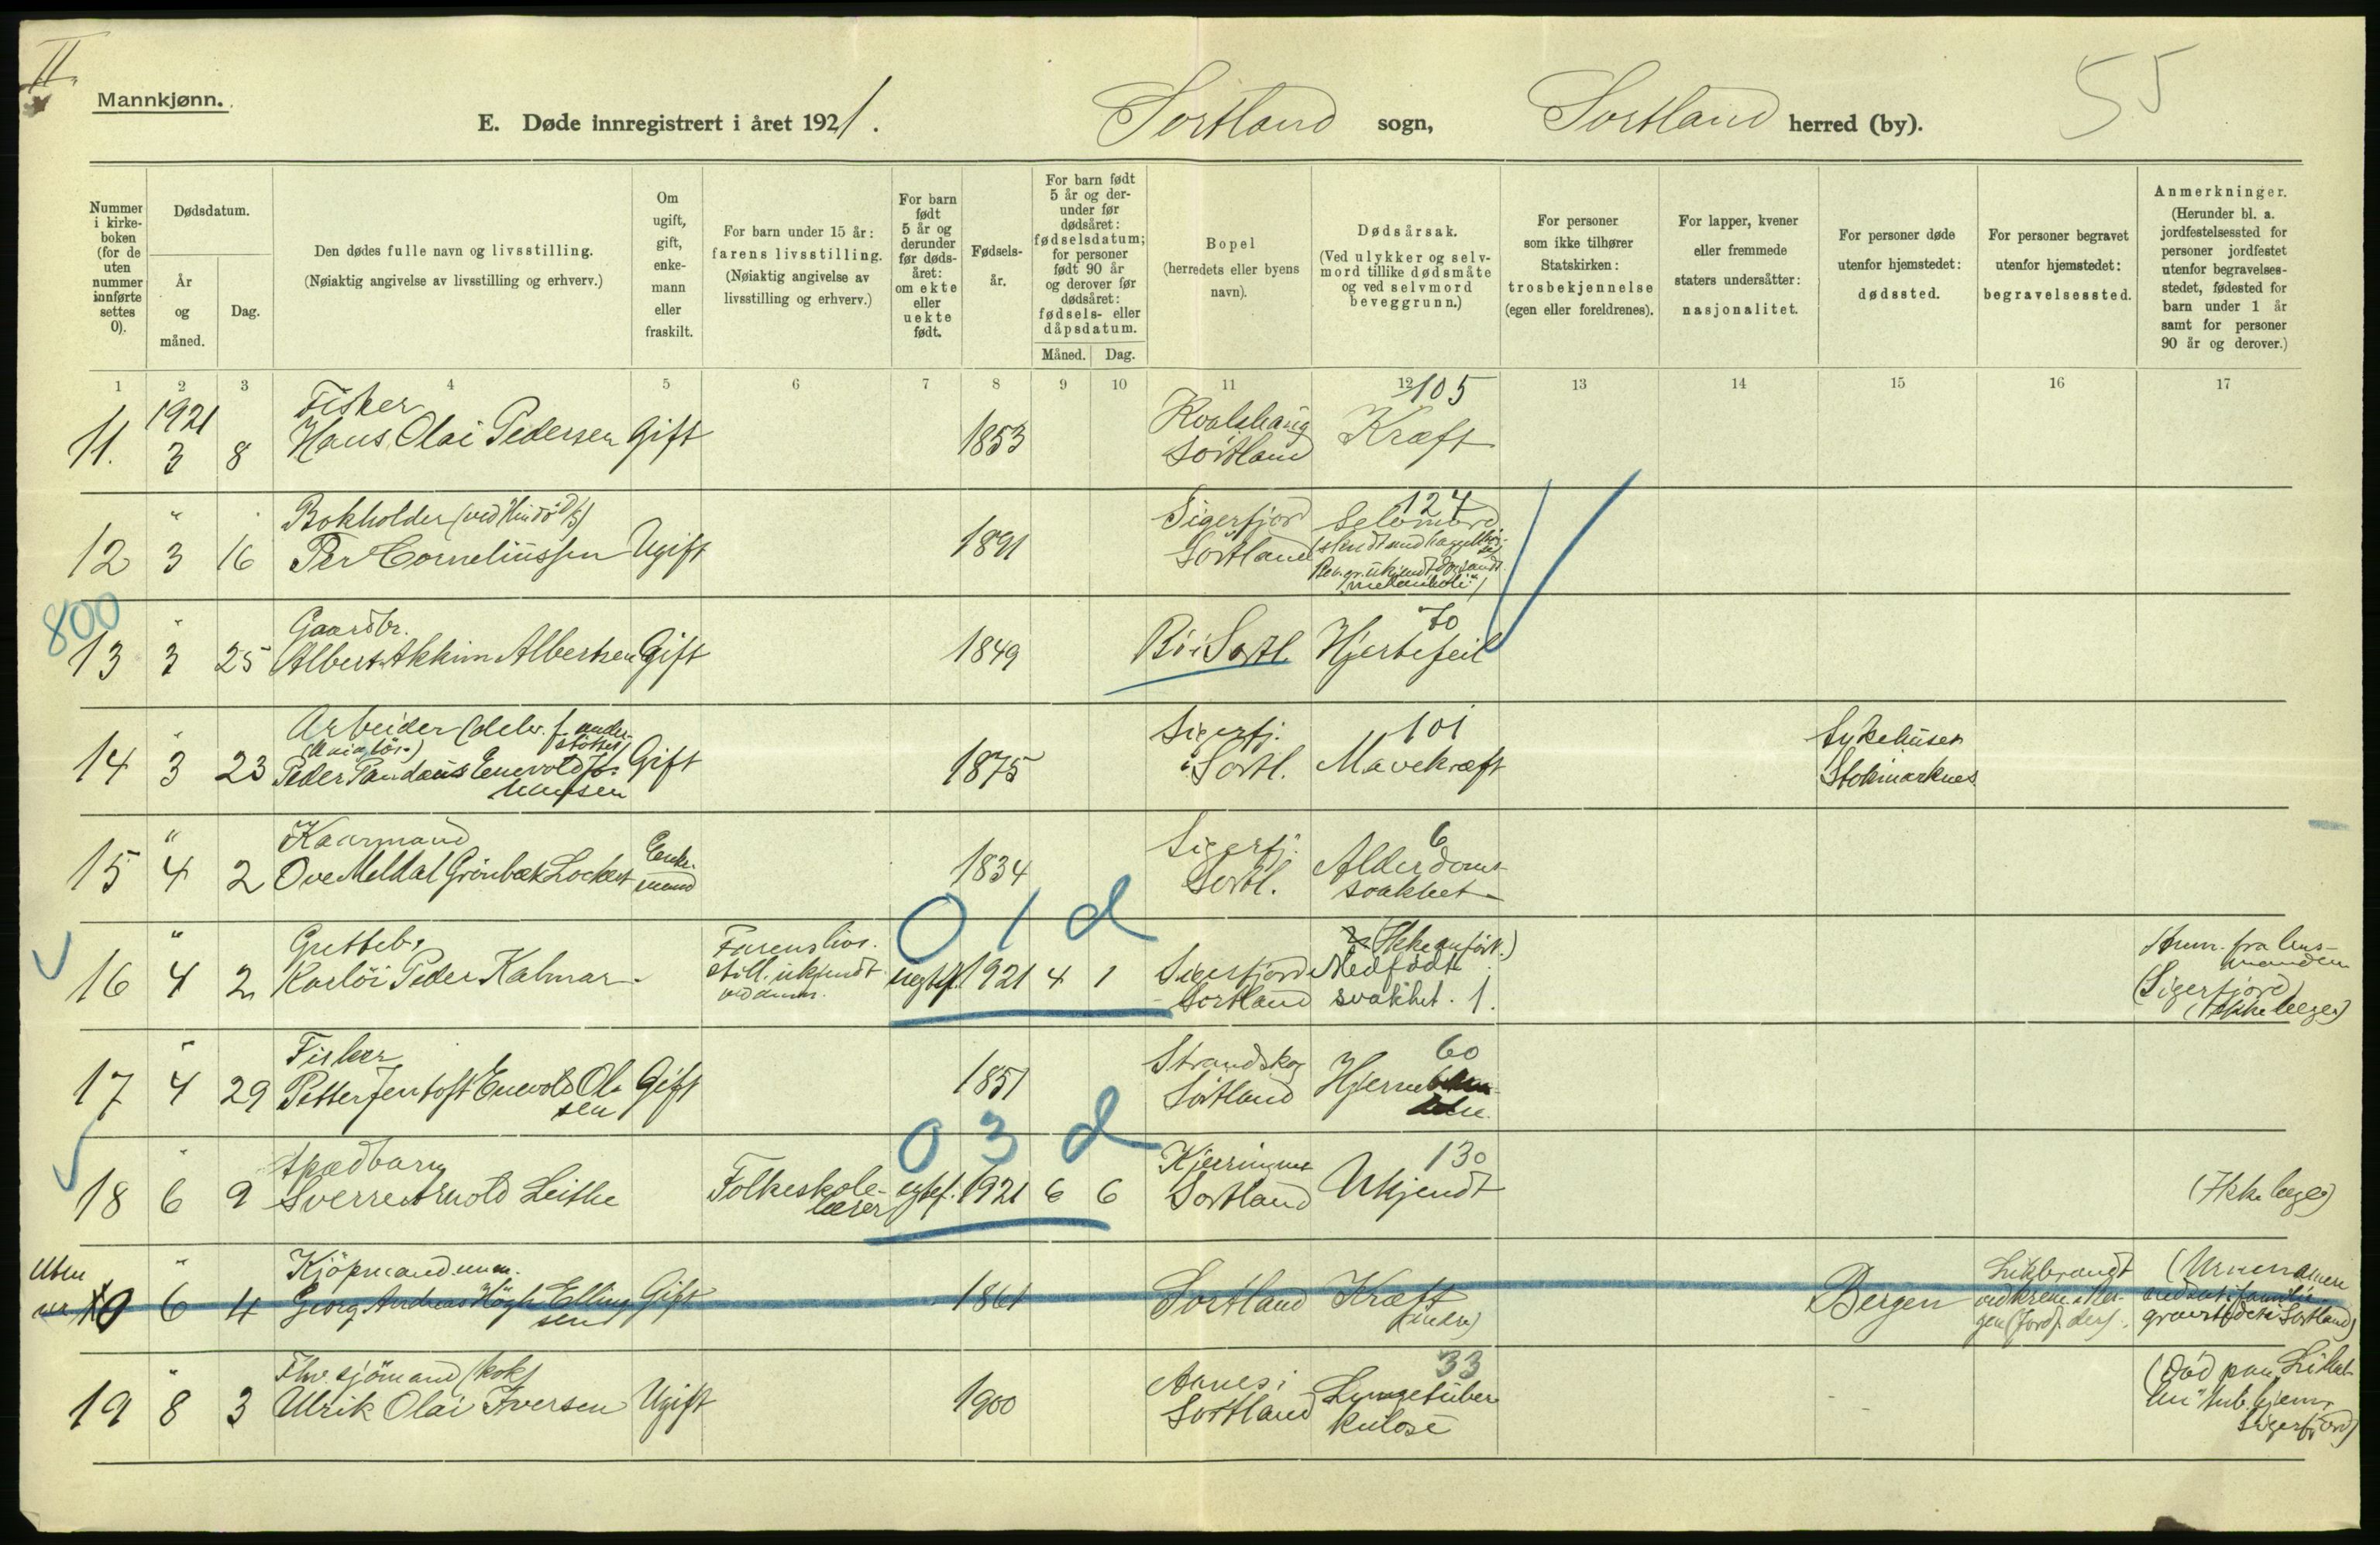 II
Mannkjønn.
E. Døde innregistrert i året 1921.
Sortland sogn, Sortland herred (by).
55
Nummer i kirkeboken (for de uten nummer innførte settes 0).
Dødsdatum.
År og måned.
Dag.
Den dødes fulle navn og livsstilling.
(Nøiaktig angivelse av livsstilling og erhverv.)
Om ugift, gift, enkemann eller fraskilt.
For barn under 15 år: farens livsstilling.
(Nøiaktig angivelse av livsstilling og erhverv.)
For barn født 5 år og derunder før dødsåret: om ekte eller uekte født.
Fødselsår.
For barn født 5 år og derunder før dødsåret: fødselsdatum; for personer født 90 år og derover før dødsåret: fødsels- eller dåpsdatum.
Måned. Dag.
Bopel (herredets eller byens navn).
Dødsårsak.
(Ved ulykker og selvmord tillike dødsmåte og ved selvmord beveggrunn.)
For personer som ikke tilhører Statskirken: trosbekjennelse (egen eller foreldrenes).
For lapper, kvener eller fremmede staters undersåtter: nasjonalitet.
For personer døde utenfor hjemstedet: dødssted.
For personer begravet utenfor hjemstedet: begravelsessted.
Anmerkninger.
(Herunder bl. a. jordfestelsessted for personer jordfestet utenfor begravelsesstedet, fødested for barn under 1 år samt for personer 90 år og derover.)
1 2 3 4 5 6 7 8 9 10 11 12 13 14 15 16 17
1921 Fisker 105
11. 3 8 Hans Olai Pedersen Gift 1853 Sortland Kræft
" Bokholder (ved Hindö D/S) Sigerfjord 124 Selvmord
12 3 16 Per Corneliussen Ugift 1891 Sortland
melankoli")
800
" Gaardbr. 70
13 3 25 Albert Akkim Albertsen Gift 1849 Bö i Sortl. Hjertefeil
" Arbeider (delv. f. understöttet) Sigerfj. 101 Sykehuset
14 3 23 Peder Enevold Gift 1875 i Sortl. Mavekræft Stokmarknes
" Kaarmand Enkemand Sigerfj. 6
15 4 2 Ove Meldal Grönbæk Lockert 1834 Sortl. Alderdomssvakhet
0 1 d
" Guttebr. Farens livsstill. ukjendt (Ikke anfört.)
16 4 2 Karlöi Peder Kalmar uegtef. 1921 4 1 Sigerfjord Sortland Medfödt svakhet. 1.
Anm. fra lensmanden
(Sigerfjord)
(Ikke læge)
" Fisker Strandskog 60
17 4 29 Petter Jentoft Enevold Olsen Gift 1851 Sortland
0 3 d
" Spædbarn Kjerringnes 130
18 6 9 Sverre Arnold Leithe Folkeskolelærer egtef. 1921 6 6 Sortland Ukjendt (Ikke læge)
Uten nr. " Kjöpmand
0 6 4 Georg Andreas Högh Ellingsen Gift 1861 Sortland Kræft (indre) Bergen
Likbrændt
gravsted i Sortland)
" Fhv. sjömand (kok) Aanes i 33
19 8 3 Ulrik Olai Iversen Ugift 1900 Sortland Lungetuberkulose
(Död paa
tub. hjem,
Sigerfjord)